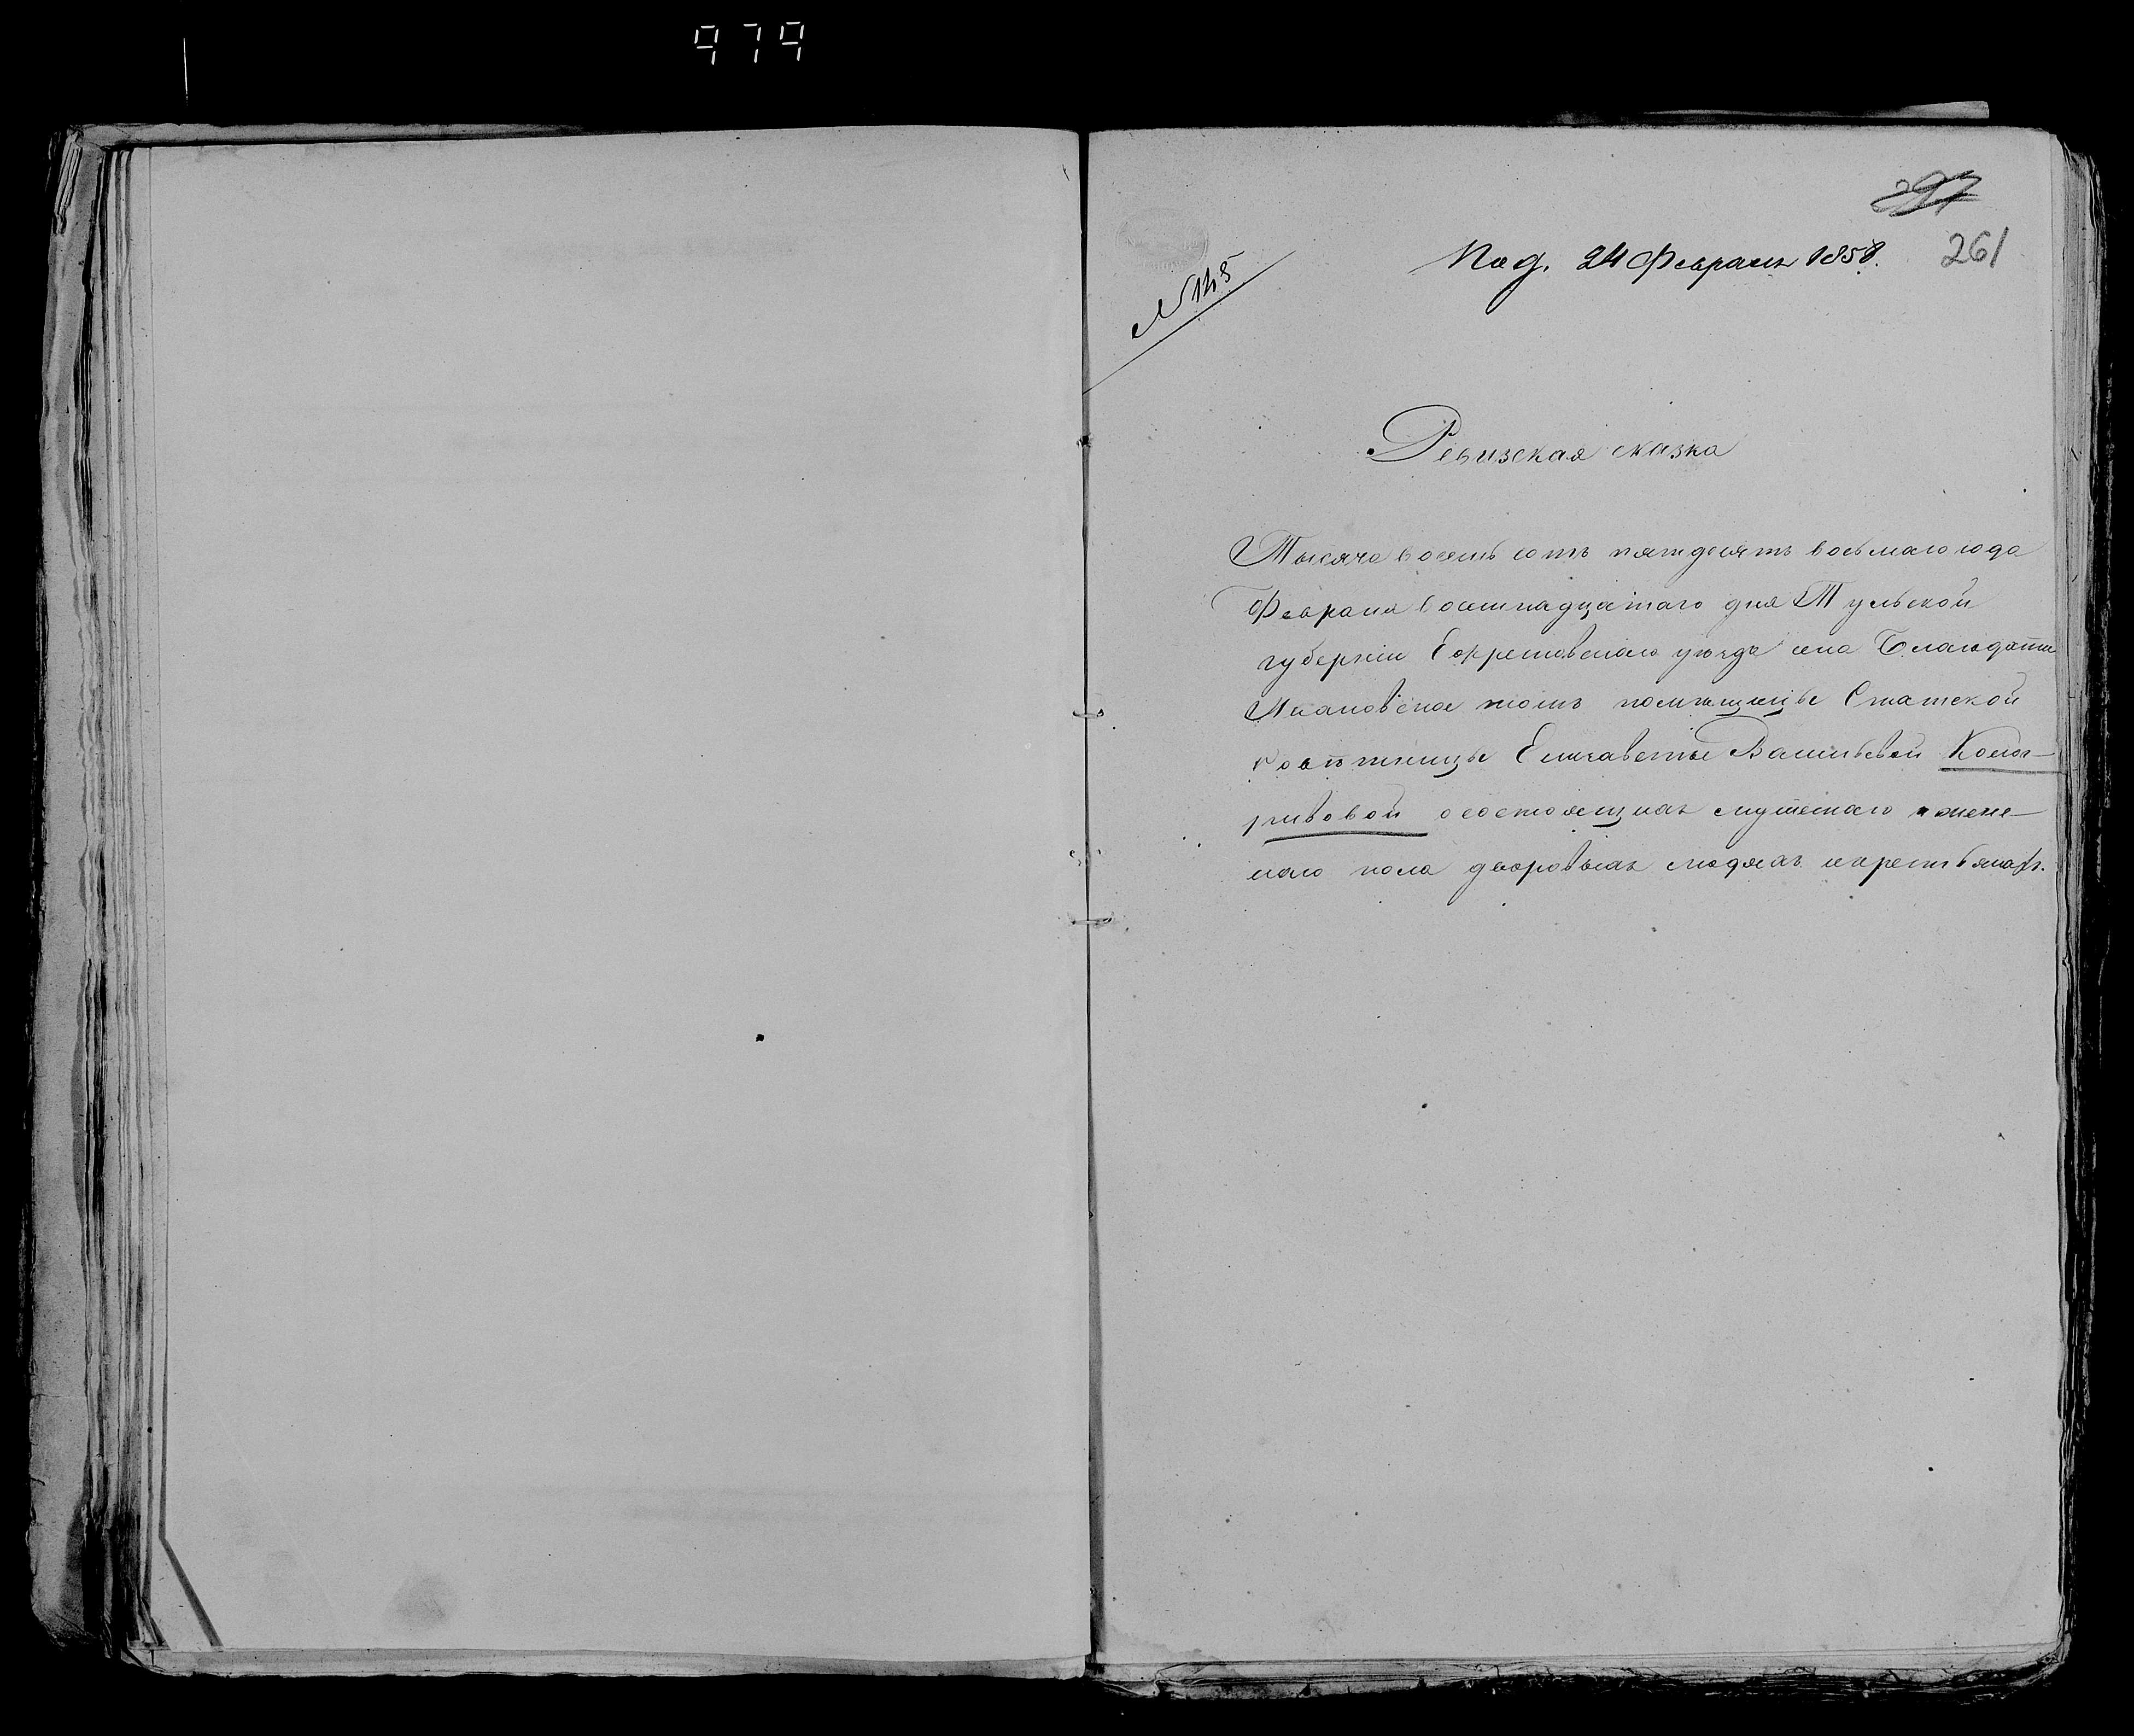 979
297
261
Под. 24 Февраля 1858.
№ 145
Ревизская сказка
Тысяча восемь сотъ пятдесятъ восьмаго года
Февраля восемнадцатаго дня Тульской
губернии Ефремовскаго уѣзда села Благодати
тожъ помѣщицы Статской
совѣтницы Елизаветы Васильевой Колог-
ривовой о состоящихъ мужескаго и жене-
скаго пола дворовыхъ людяхъ и крестьянахъ.